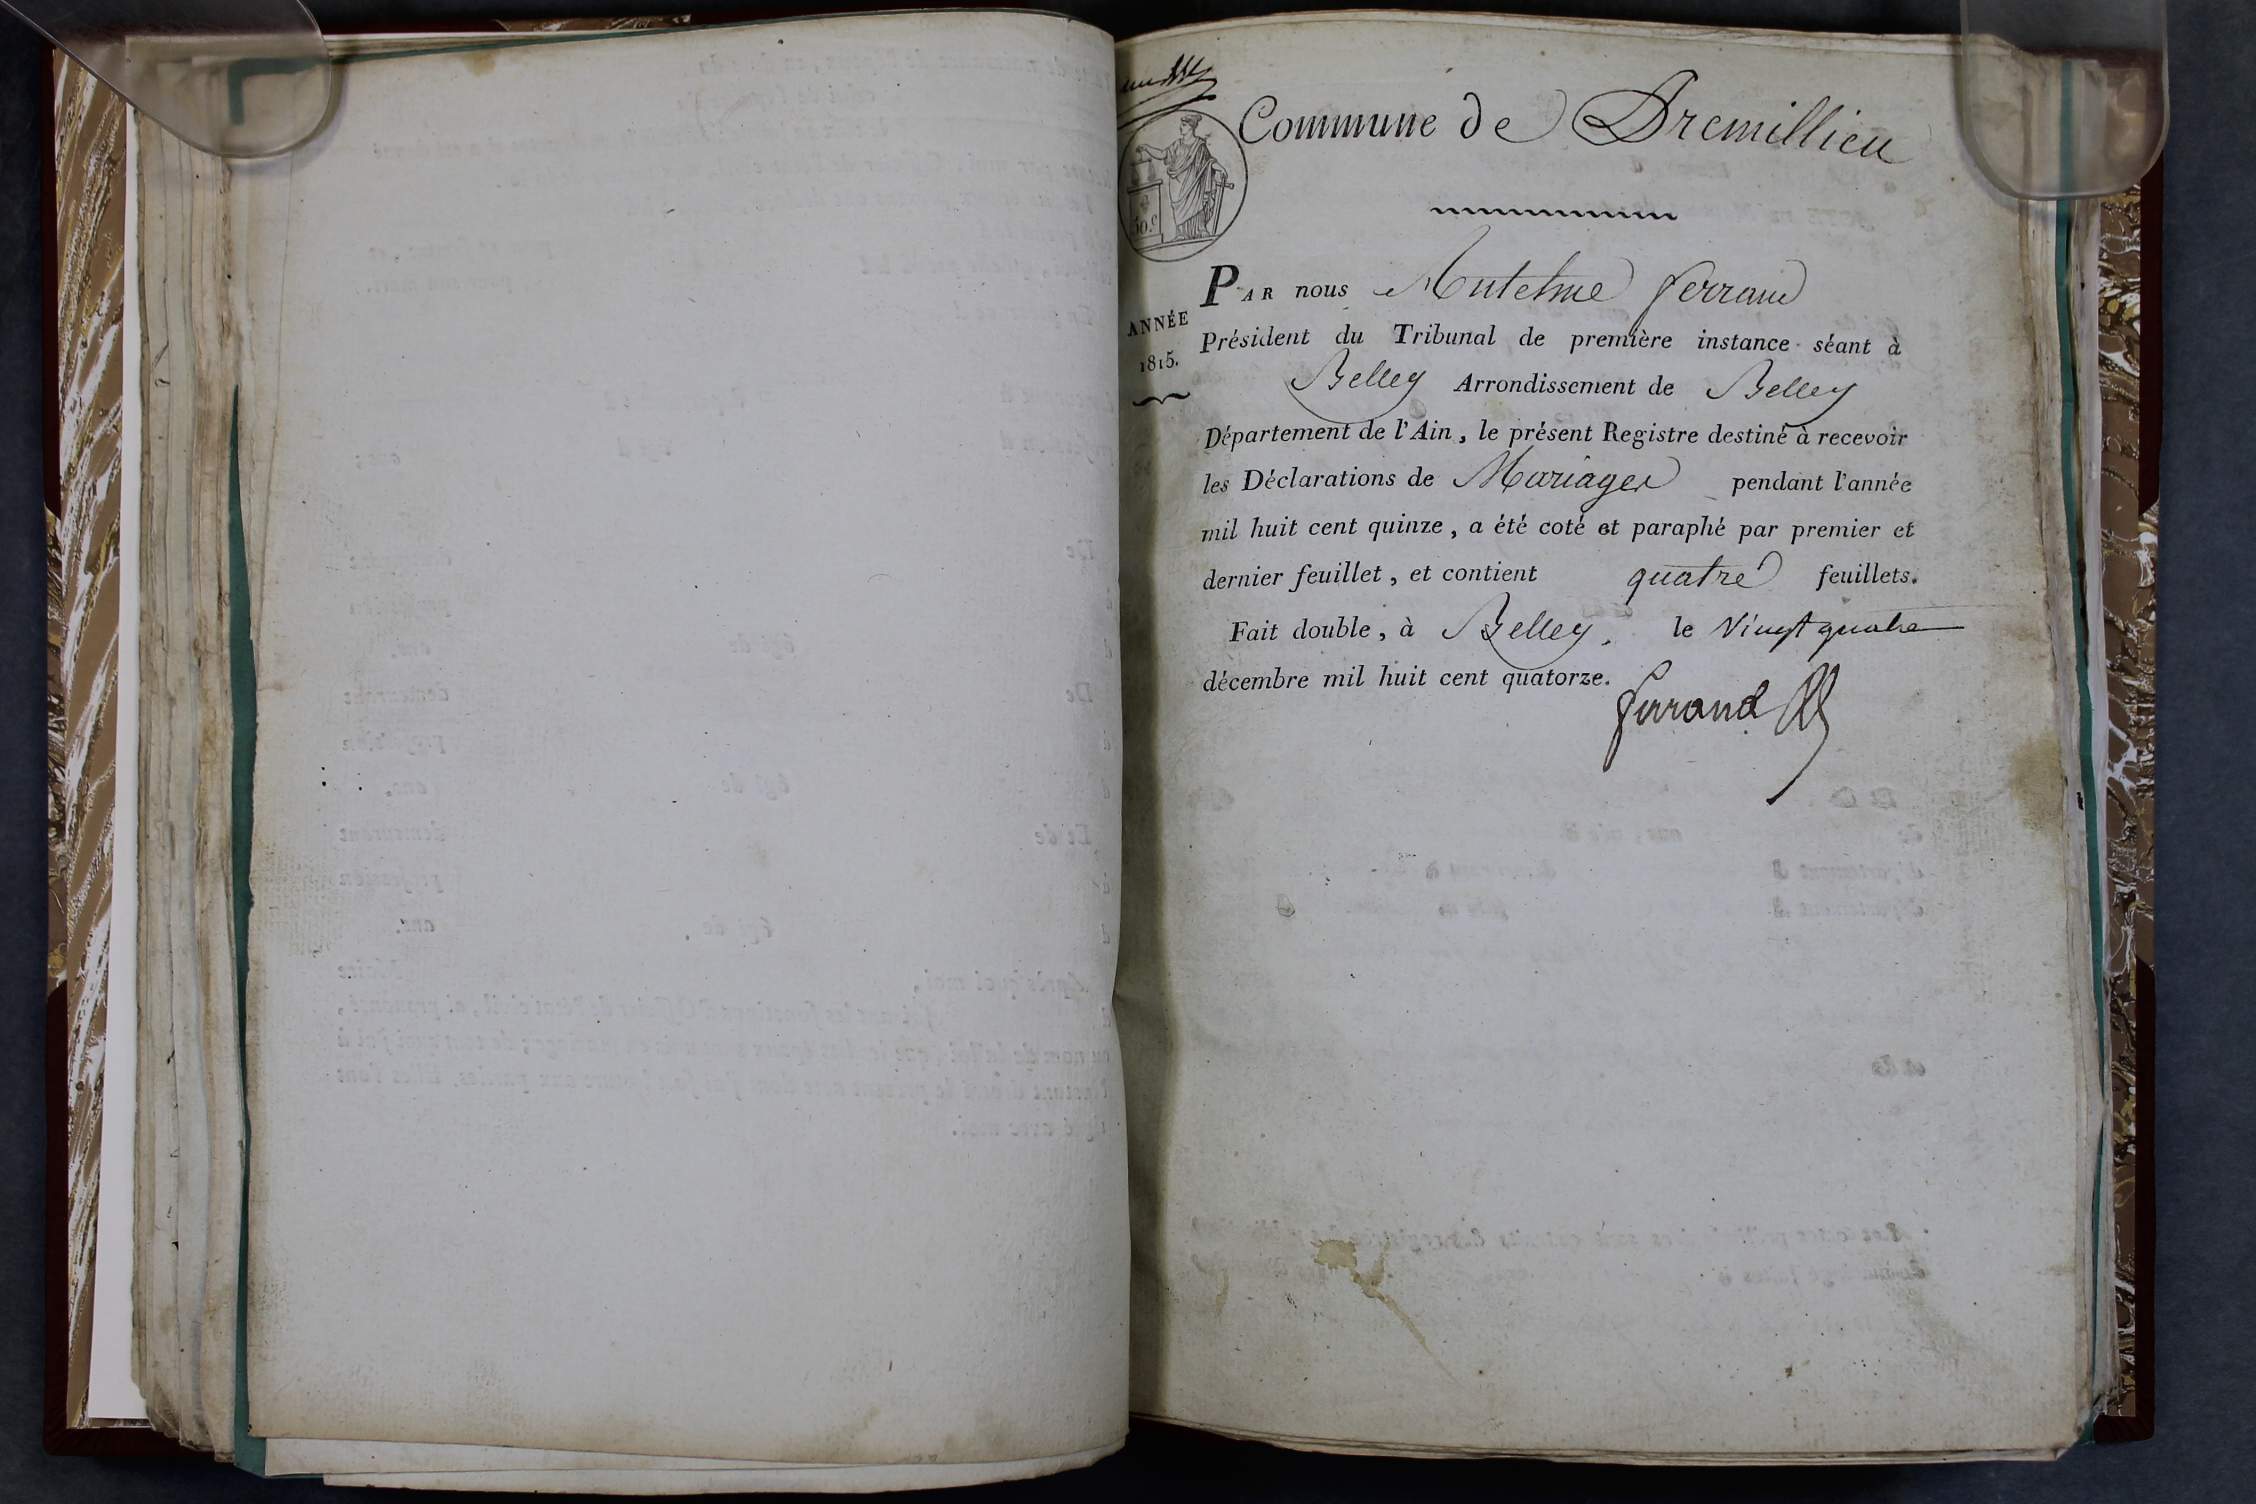 Commune de Dremillieu
50.c
PAR nous Antelme ferrand
ANNÉE
1815.
Président du Tribunal de première instance séant à
Belley Arrondissement de Belley
Département de l'Ain, le présent Registre destiné à recevoir
les Déclarations de Mariages pendant l'année
mil huit cent quinze, a été coté et paraphé par premier et
dernier feuillet, et contient quatre feuillets.
Fait double, à Belley, le Vingt quatre
décembre mil huit cent quatorze.
ferrand